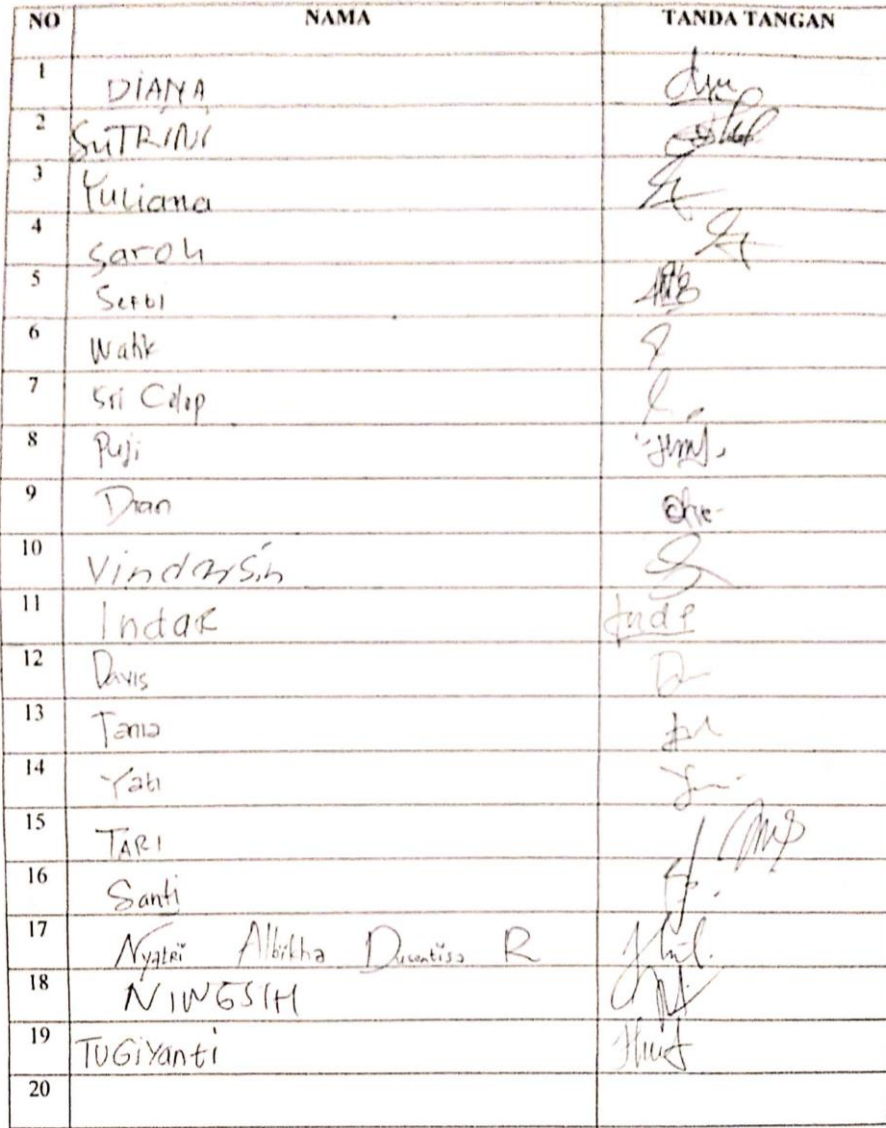 NO NAMA TANDA TANGAN
1 DIANA
2 SUTRINI
3 Yuliana
4 Saroh
5 Serbi
6 Watik
7 Sri Colop
8 Puji
9 Dian
10 Vindarsih
11 Indar
12 Davis
13 Tania
14 Yati
15 TARI
16 Santi
17 Nyatri Albikha R
18 NINGSIH
19 TUGiYanti
20